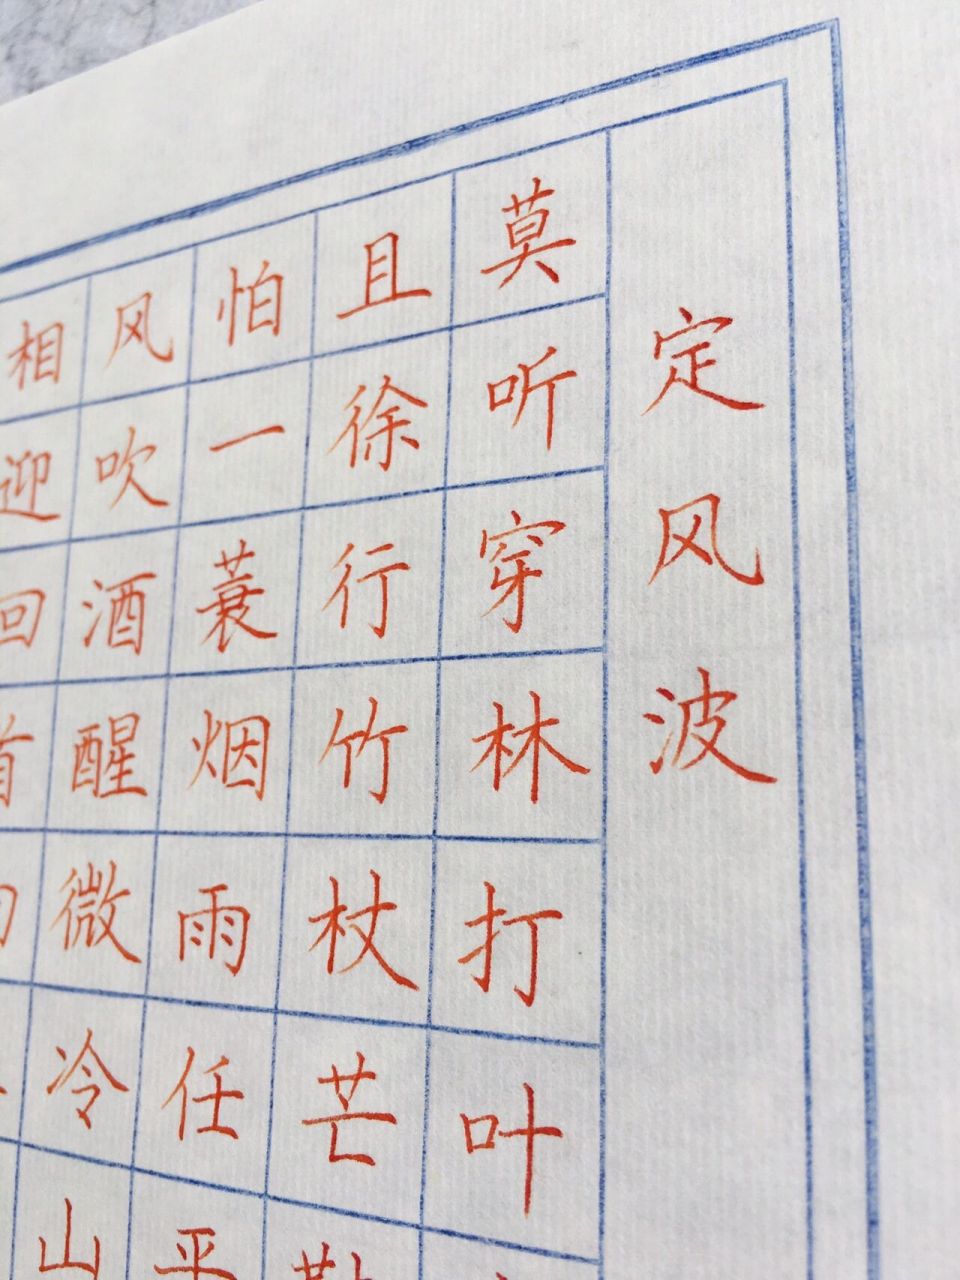 定风波
莫听穿林打叶
且徐行竹杖芒
怕一蓑烟雨任平
风吹酒醒微冷山
相迎回首